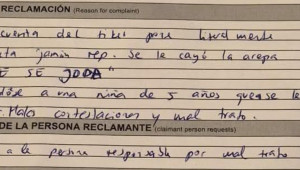 RECLAMACIÓN (Reason for complaint)
cuenta del tiket pone literalmente
"jamón rep. Se le cayó la arepa
E SE JODA"
a una niña de 5 años que se le
Malas contestaciones y mal trato.
DE LA PERSONA RECLAMANTE (claimant person requests)
a la persona responsable por mal trato